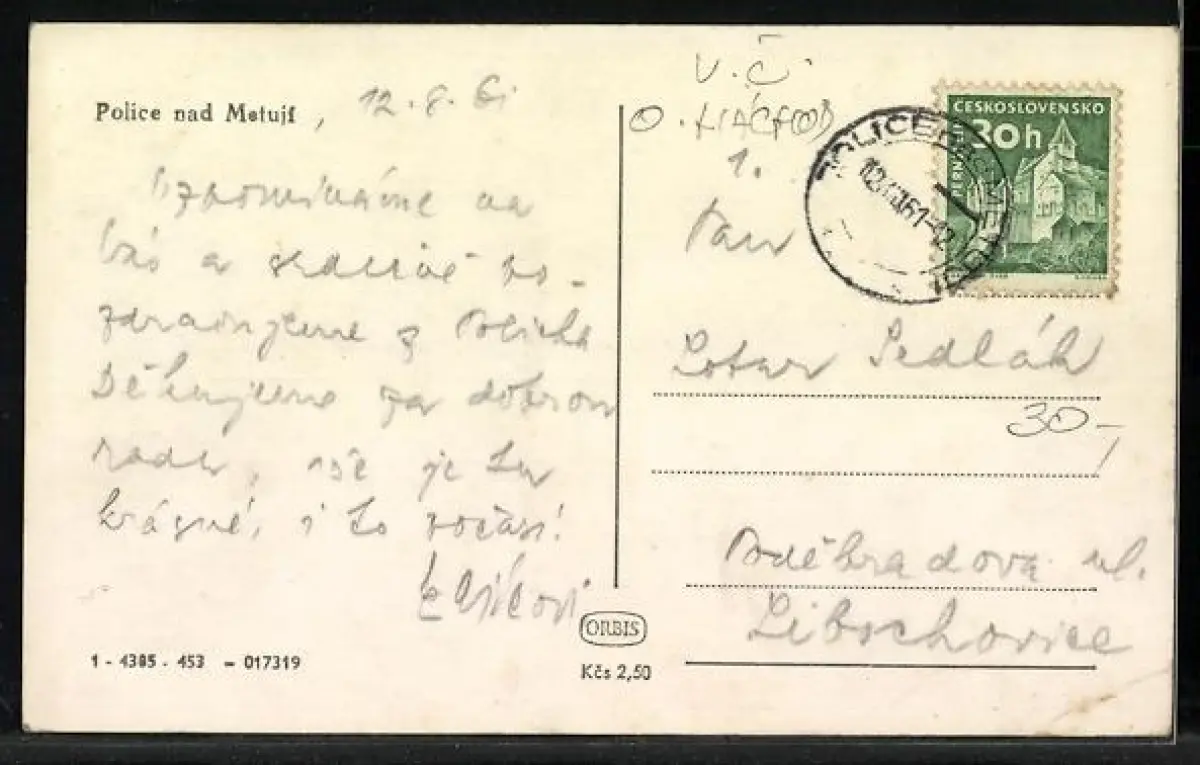 Police nad Metují, 12. 8. 61
Vzpomínáme na
Vás a srdečně po-
zdravujeme z Police
Děkujeme za dobrou
radu, vše je tu
krásné, i to počasí!
V. Č.
O. NÁCHOD
1.
ČESKOSLOVENSKO
30 h
PERNŠTEJN
POLICE NAD METUJÍ
12.VIII.61-12
Pan
Lotar Sedlák
30,-
Poděbradova ul.
Libochovice
ORBIS
Kčs 2,50
1 - 4385 - 453 - 017319